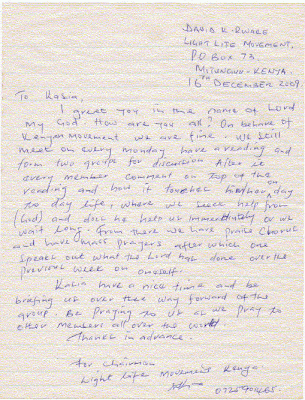 DAVID K. RWARE
LIGHT LIFE MOVEMENT,
PO BOX 73
MITUNGUU - KENYA.
16TH DECEMBER 2009
To Kasia,
I greet you in the name of Lord
My God. How are you all? On behave of
Kenyan Movement we are fine. We still
meet on every Monday have a reading and
form two groups for discussion. After it
every member comment on top of the
reading and how it touches her/him, on day
to day life, where we seek help from
(God) and does he help us immediately or we
wait long. From there we have praise chorus
and have mass prayers after which one
speaks out what the Lord has done over the
previous week on oneself.
Kasia have a nice time and be
briefing us over the way forward of the
group. Be praying to us as we pray to
other members all over the world.
Thanks in advance.
for Chairman
Light Life Movement Kenya